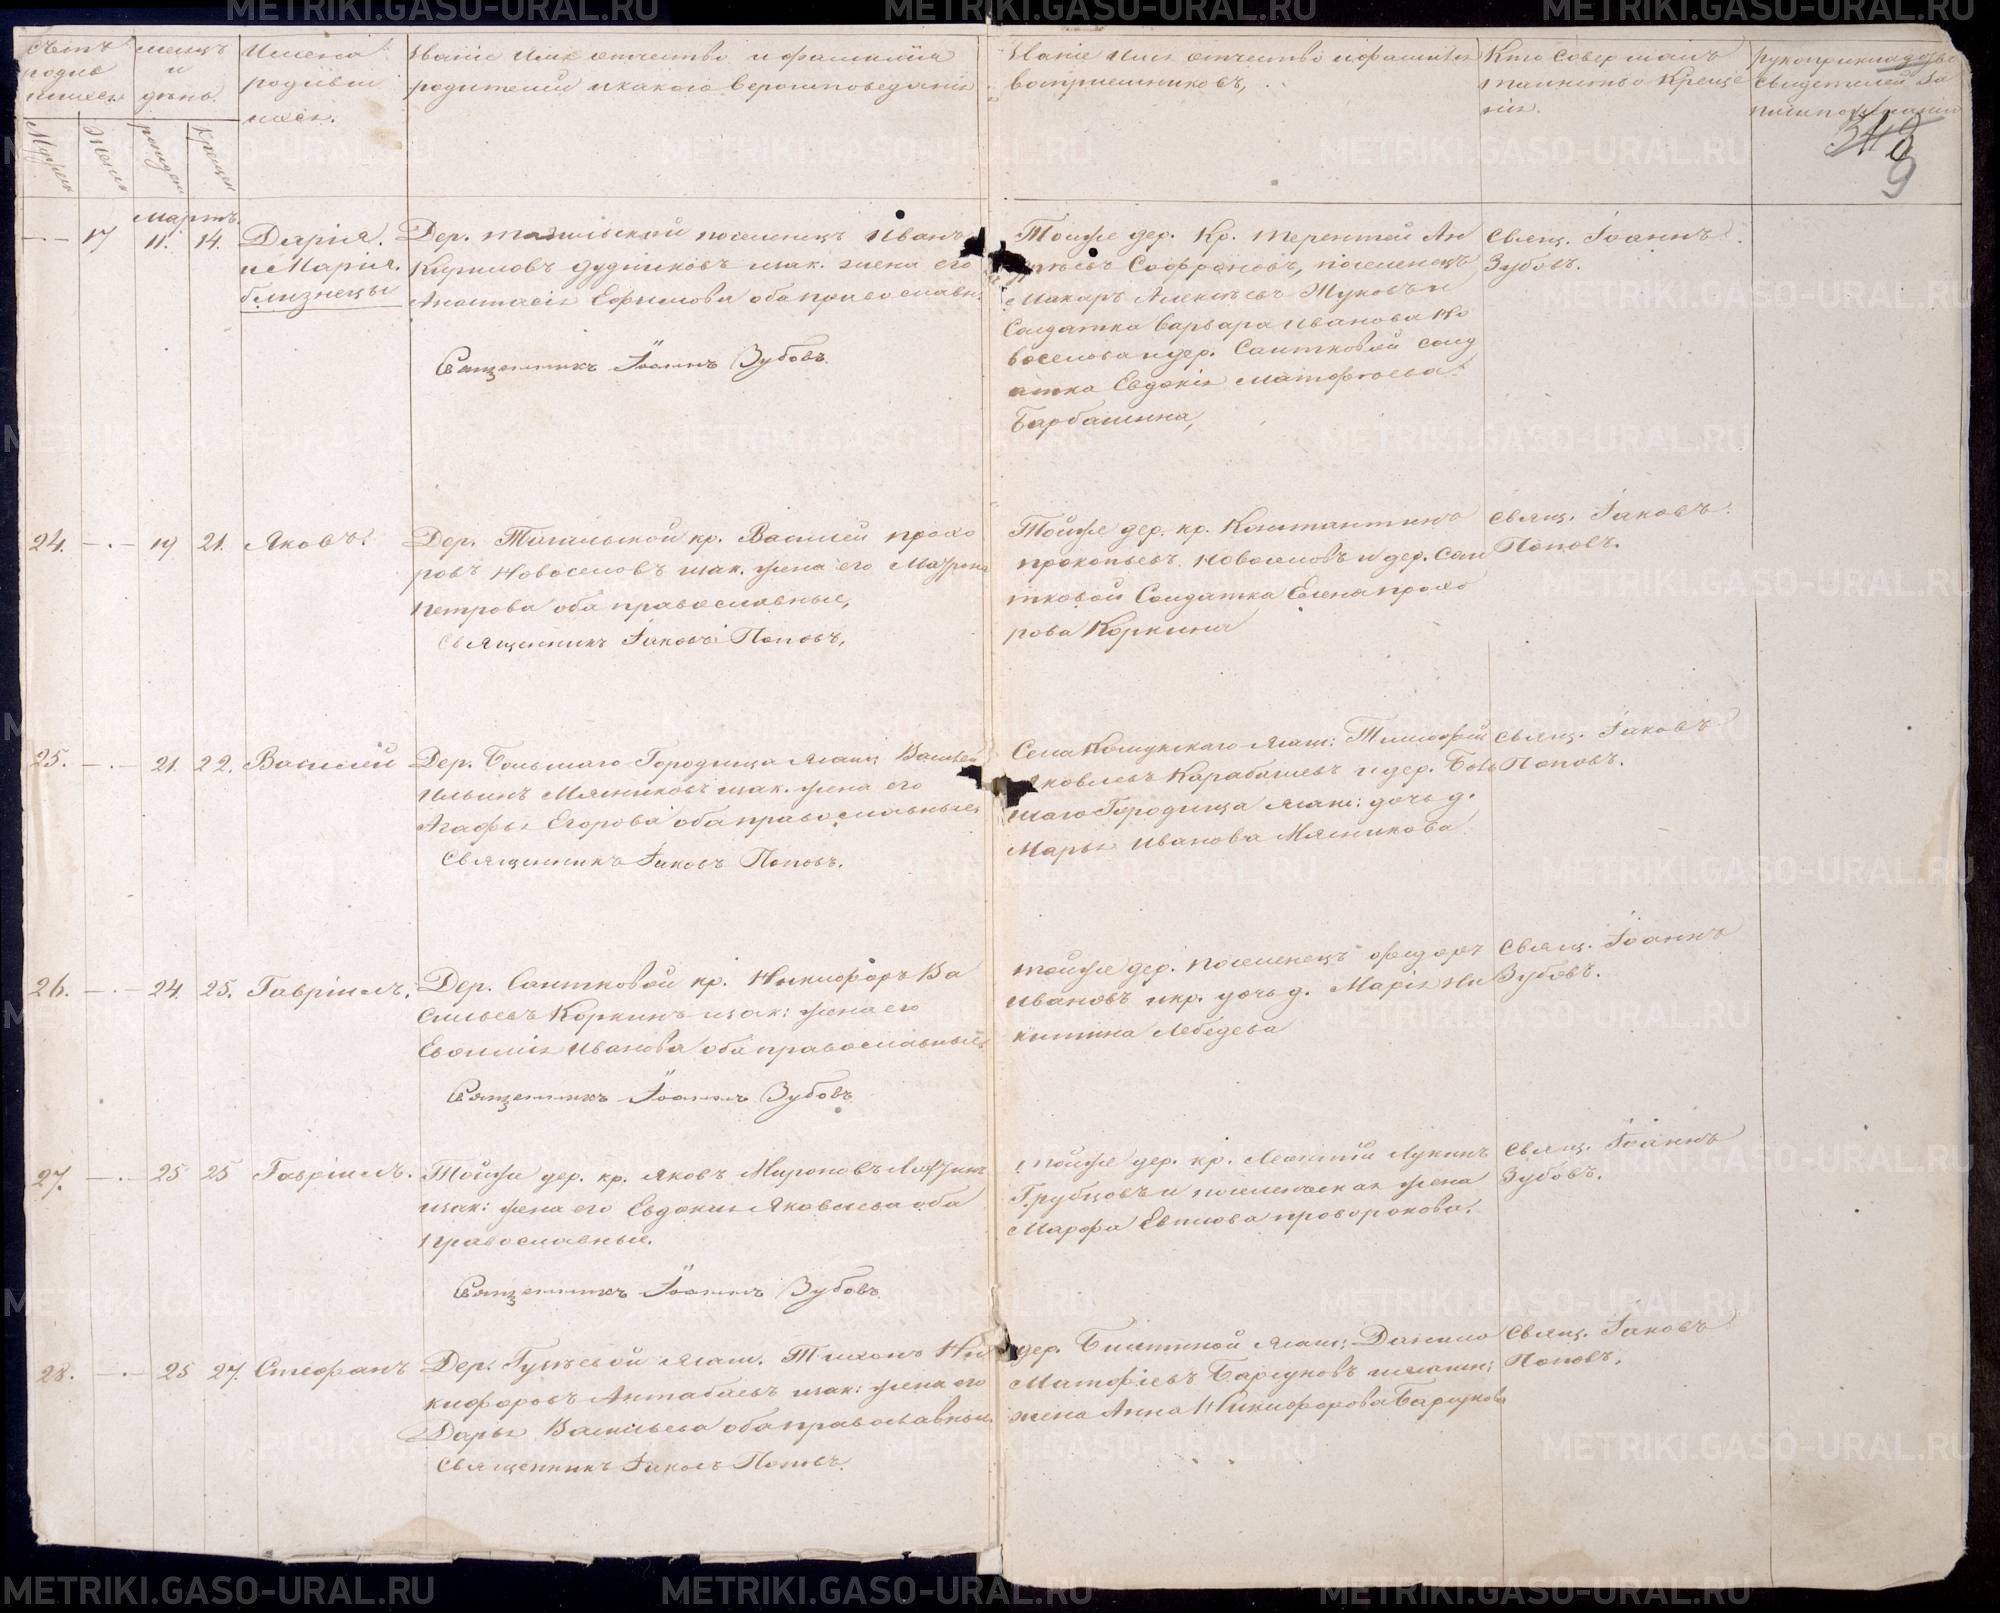 METRIKI.GASO-URAL.RU
Счетъ родив шихся
Мужеск
Женск
месяцъ и день
рожден
крещен
Имена родивши ихся.
Званіе имя отчество и фамилія
родителей и какого вероисповеданія
Званіе имя отчество и фамилія
воспріемниковъ,
Кто совершалъ
таинство Креще
нія.
рукоприкладство
свидетелей за
писи по желанію
9
мартъ.
17
11.
14.
Дарія.
и Марія.
близнецы
Дер. поселенецъ Иванъ
Кириловъ зак. жена его
Анастасія Ефимова оба православн.
Священникъ Іоаннъ Зубовъ.
Тойже дер. Кр. Терентей Ан
Софроновъ, поселенецъ
Макаръ Алексеевъ Жуковъ и
Солдатка Варвара Иванова Но
воселова и дер. Саитковой солд
атка Евдокія Матофеева
Барбашина,
Свящ. Іоаннъ
Зубовъ.
24.
19
21.
Яковъ.
Дер. Тагильской кр. Василей прохо
ровъ Новоселовъ зак. жена его
Петрова оба православные,
Священникъ Іаковъ Поповъ,
Тойже дер. кр. Константинъ
прокопьевъ Новоселовъ и дер. Саи
тковой Солдатка Елена прохо
рова Коркина
Свящ. Іаковъ
Поповъ.
25.
21.
22.
Василей
Дер. Большаго Городища Василей
Ильинъ Мясниковъ зак. жена его
Агафья Егорова оба православные,
Священникъ Іаковъ Поповъ.
Села Кошукскаго Тимофей
Яковлевъ Карабашевъ и дер. Боль
шаго Городища дочь д.
Марья Иванова Мясникова
Свящ. Іаковъ
Поповъ.
26.
24.
25.
Гавріилъ.
Дер. Саитковой кр. Никифоръ Ва
сильевъ Коркинъ зак: жена его
Иванова оба православные
Священникъ Іоаннъ Зубовъ
тойже дер. поселенецъ Федоръ
Ивановъ и кр. дочь д. Марія Ни
китина Лебедева
Свящ. Іоаннъ
Зубовъ.
27.
25
25
Гавріилъ.
Тойже дер. кр. Яковъ Мироновъ
зак: жена его Евдокія Яковлева оба
Православные.
Священникъ Іоаннъ Зубовъ
тойже дер. кр. Леонтій Лукинъ
Грубцовъ и жена
Марфа
Свящ. Іоаннъ
Зубовъ.
28.
25
27.
Стефанъ
Дер. Тихонъ Ни
кифоровъ зак: жена его
Дарья Васильева оба православные
Священникъ Іаковъ Поповъ.
дер. Данило
Матофіевъ
жена Анна Никифорова
Свящ. Іаковъ
Поповъ.